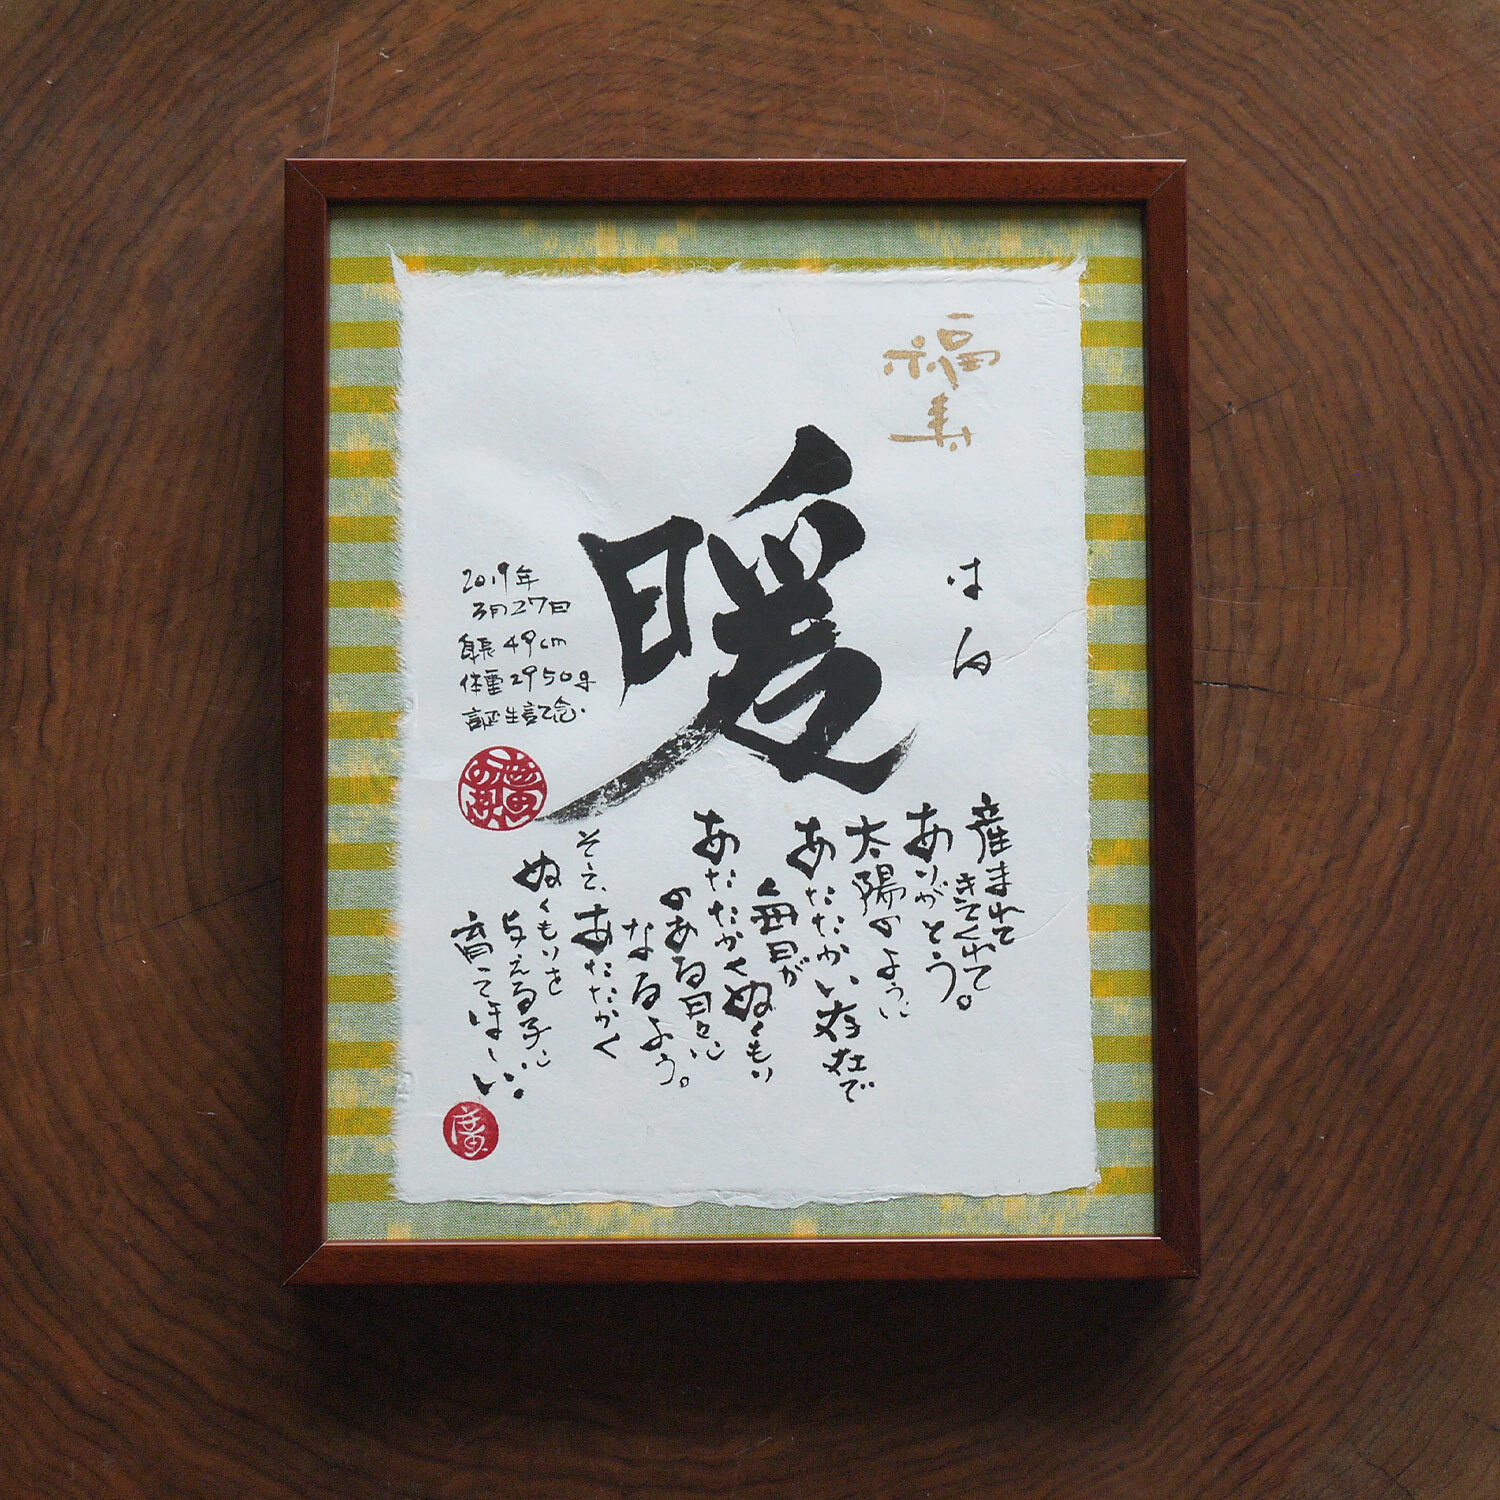 福寿
はる
暖
2019年
3月27日
身長49cm
体重2950g
誕生記念
産まれて
きてくれて
ありがとう。
太陽のように
あたたかい存在で
毎日が
あたたかくぬくもり
のある日々に
なるよう。
そして、あたたかく
ぬくもりを
与える子に
育ってほしい。